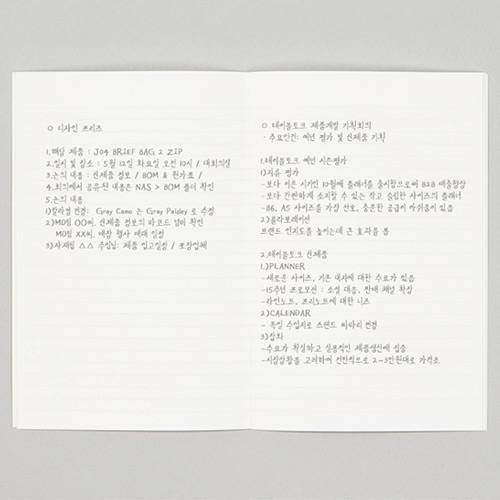 ○ 디자인 프리즈
1.해당 제품 : J04 BRIEF BAG 2 ZIP
2.일시 및 장소 : 5월 12일 화요일 오전 10시 / 대회의실
3.논의 내용 : 신제품 정보 / BOM & 원가표 /
4.회의에서 공유된 내용은 NAS > BOM 폴더 확인
5.논의 내용
1)칼라명 변경: Gray Camo 는 Gray Paisley 로 수정
2)MD팀 OO씨, 신제품 정보의 바코드 넘버 확인
MD팀 XX씨, 매장 행사 매대 일정
3)자재팀 △△ 수입님: 제품 입고일정 / 포장업체
○ 테이블토크 제품개발 기획회의
- 주요안건: 예년 평가 및 신제품 기획
1.테이블토크 예년 시즌평가
1)자유 평가
-보다 이른 시기인 10월에 플래너를 출시함으로써 B2B 매출향상
-보다 간편하게 소지할 수 있는 작고 슬림한 사이즈의 플래너
-B6, A5 사이즈를 가장 선호, 충분한 공급이 아쉬움이 있음
2)콜라보레이션
브랜드 인지도를 높이는데 큰 효과를 봄
2.테이블토크 신제품
1)PLANNER
-새로운 사이즈, 기존 내지에 대한 수요가 있음
-15주년 프로모션 : 소셜 대응, 판매 채널 확장
-라인노트, 프리노트에 대한 니즈
2)CALENDAR
- 독일 수입지로 스탠드 싸바리 변경
3)잡화
-수요가 확실하고 실용적인 제품생산에 집중
-시장상황을 고려하여 전반적으로 2~3만원대로 가격조